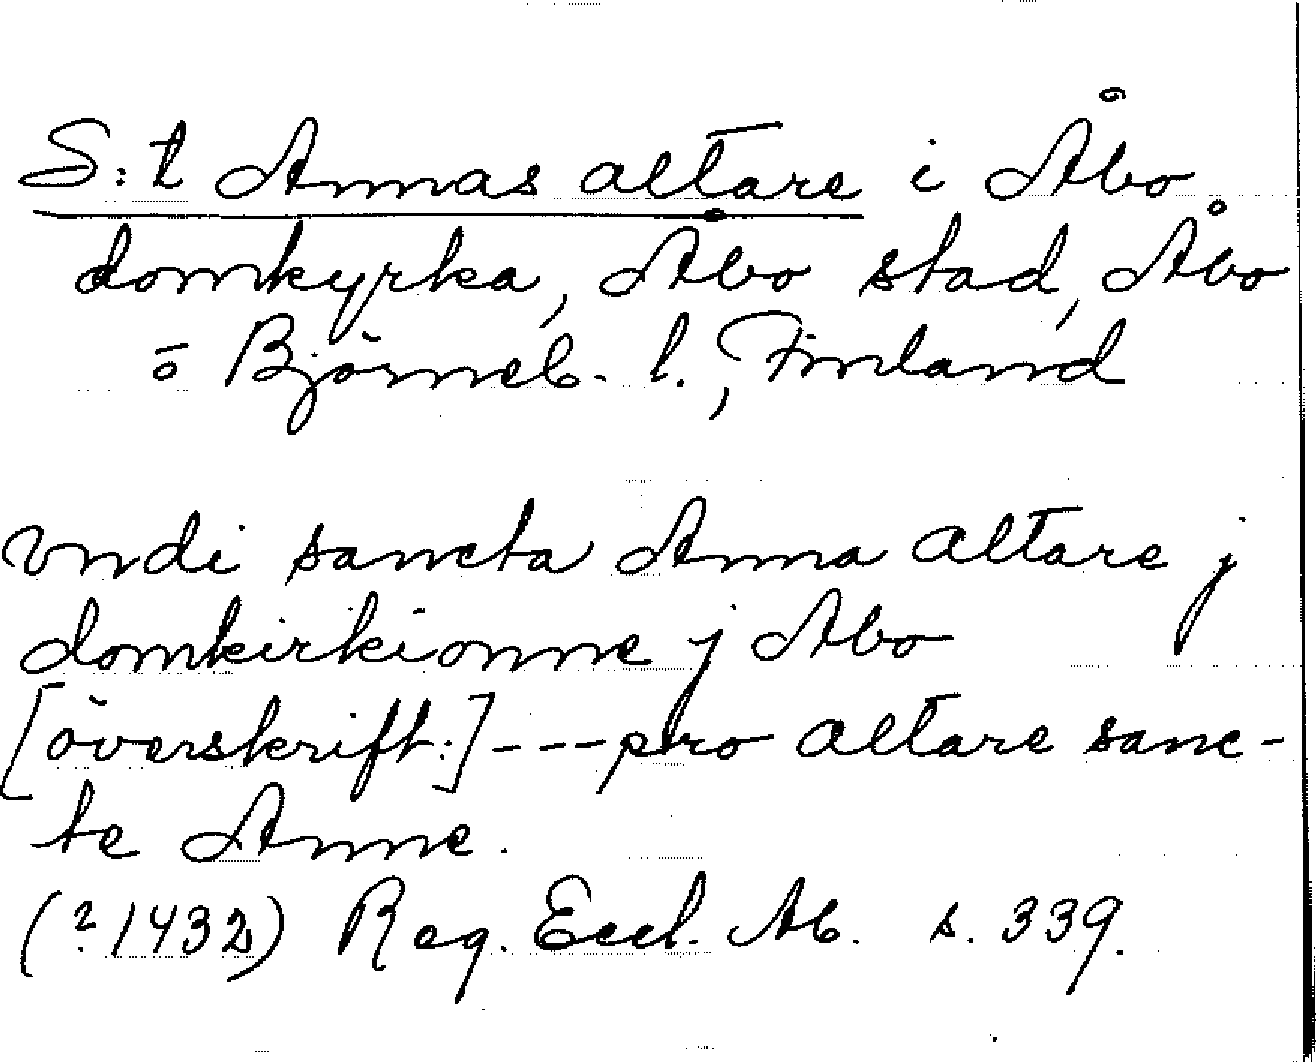 S:t Annas altare i Åbo
domkyrka, Åbo stad, Åbo
o Björneb. l., Finland
vndi sancta Anna altare j
domkirkionne j Abo
[överskrift:] --- pro altare sanc-
te Anne.
(? 1432) Reg. Eccl. Ab. s. 339.